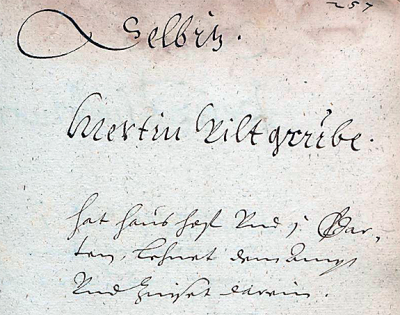 257
Selbitz.
Mertin Viltgrübe.
hat Haus hof Vnd 1 Gar-
ten, Lehnet dem Ampt
Vnd Zinset darein.